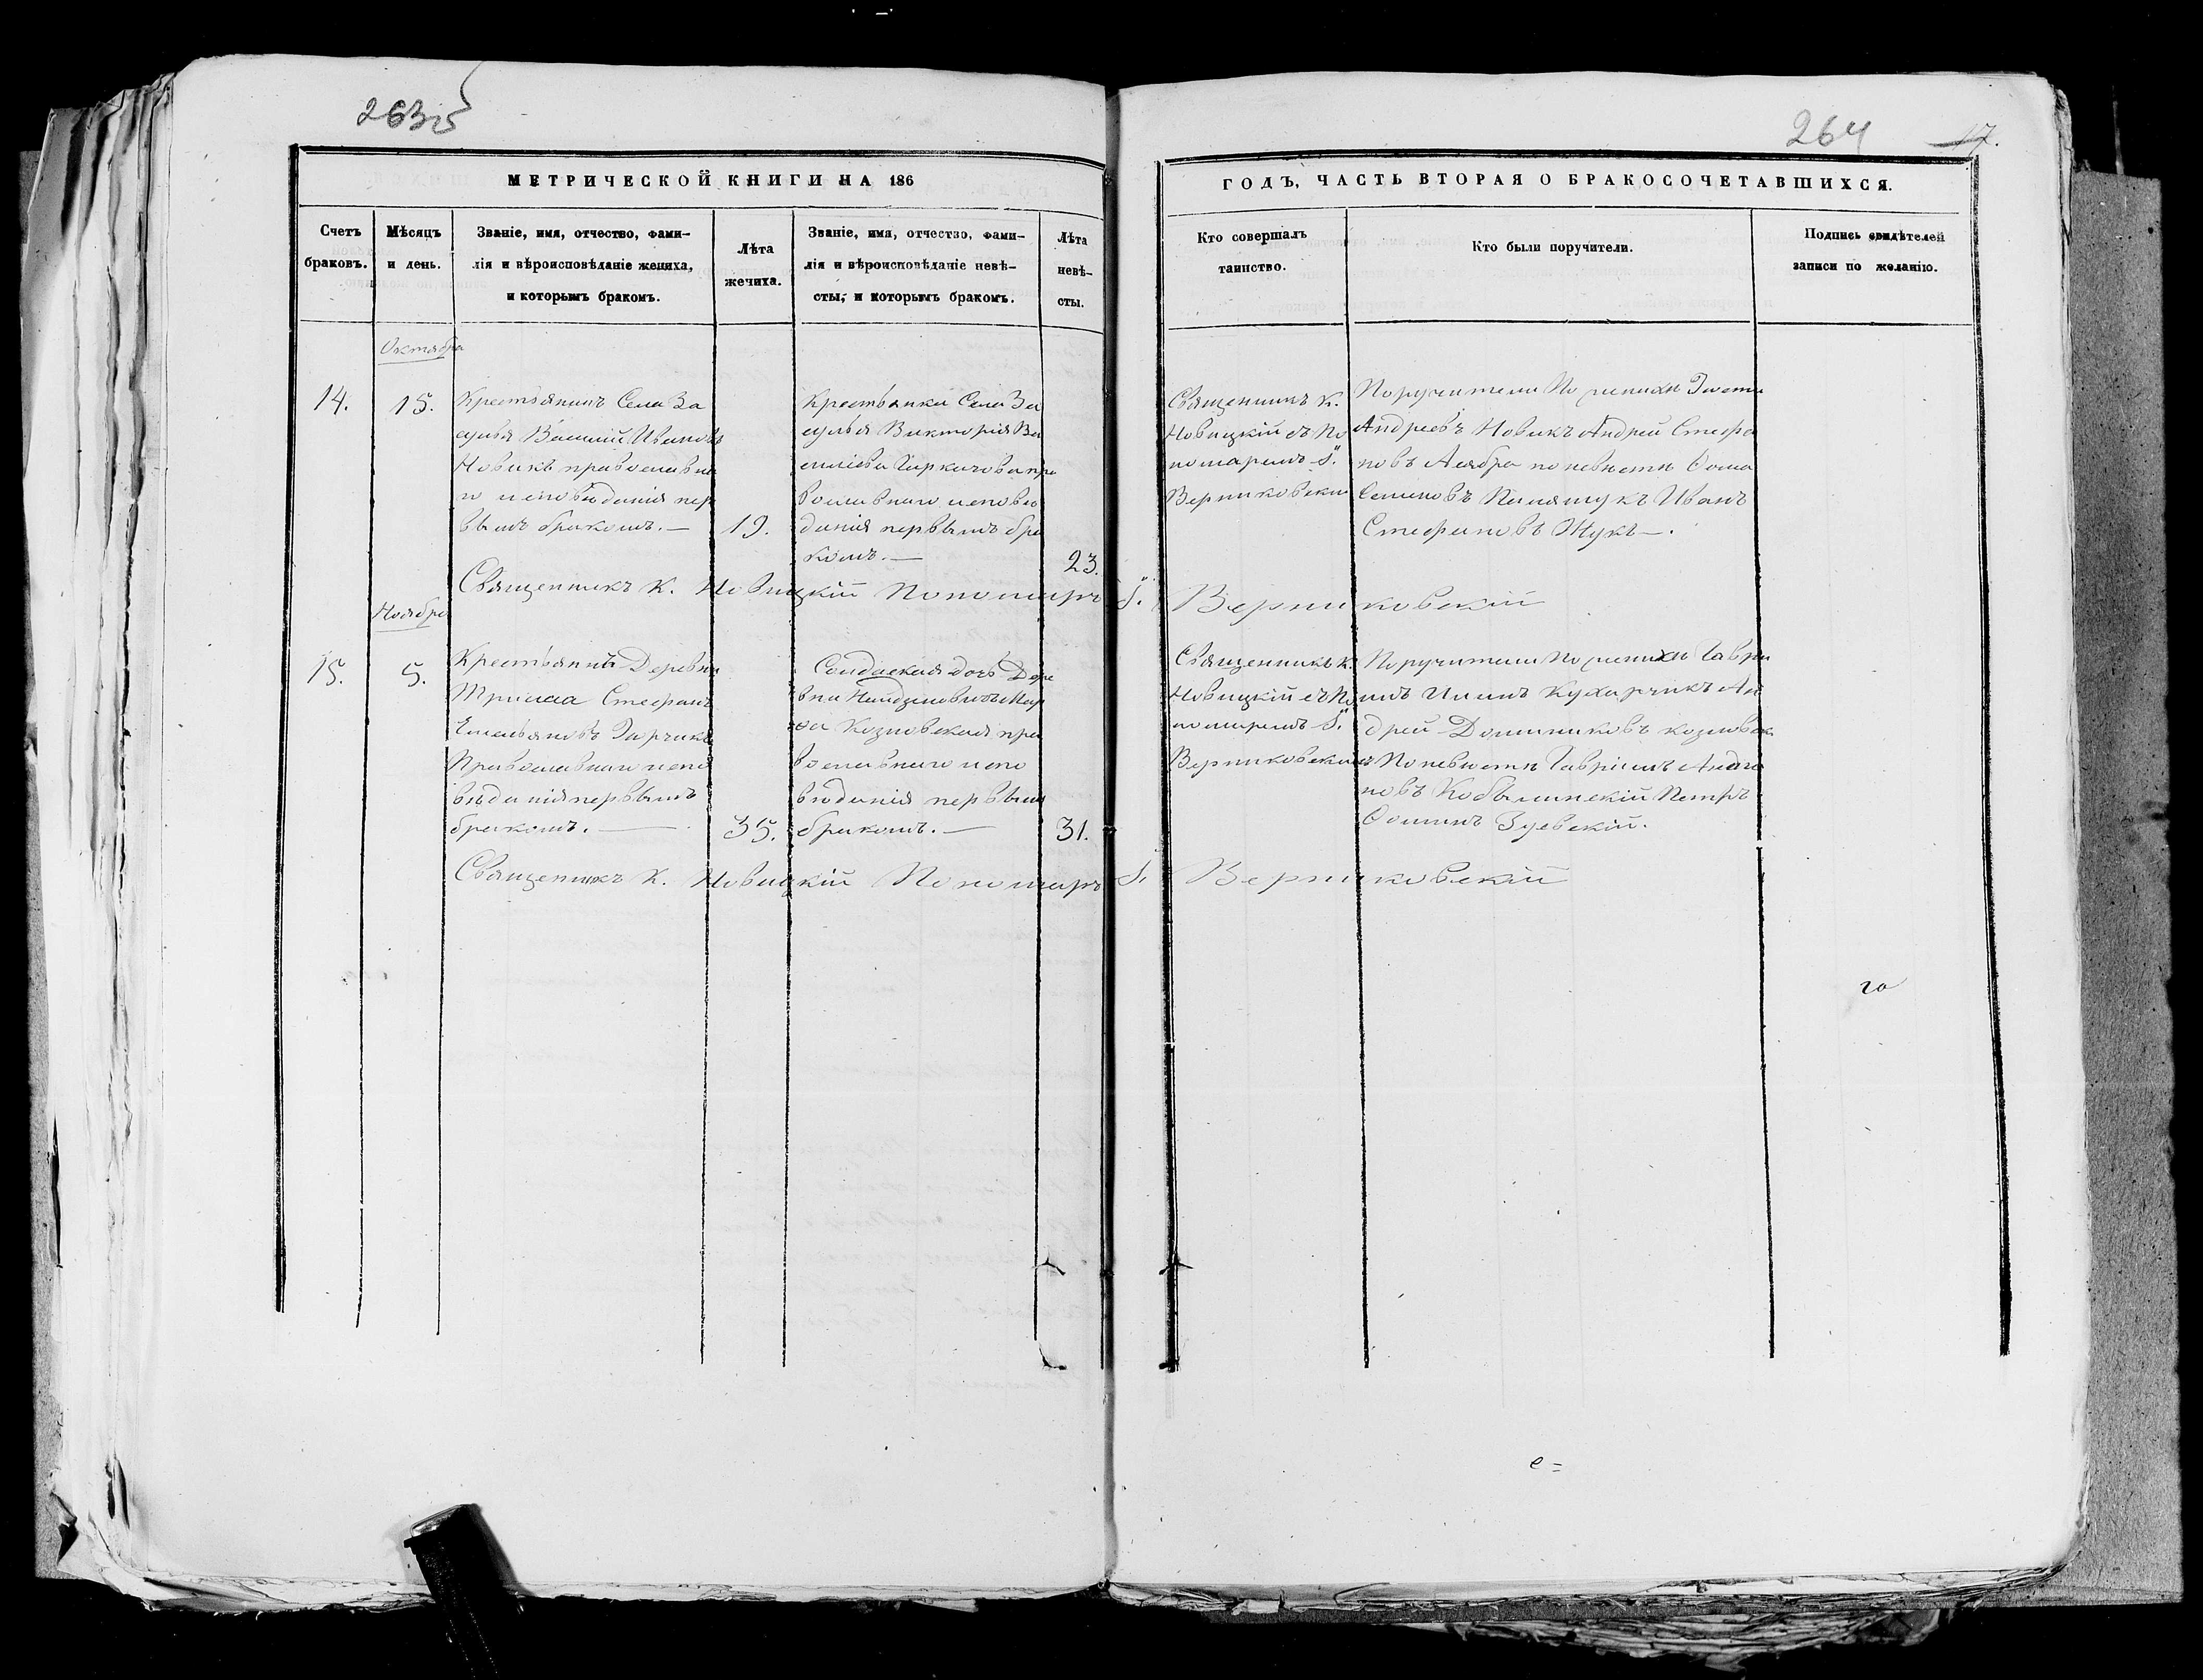 263
264 17.
МЕТРИЧЕСКОЙ КНИГИ НА 186
ГОДЪ, ЧАСТЬ ВТОРАЯ О БРАКОСОЧЕТАВШИХСЯ.
Счетъ
браковъ.
Мѣсяцъ
и день.
Званіе, имя, отчество, фами-
лія и вѣроисповѣданіе жениха,
и которымъ бракомъ.
Лѣта
жечиха.
Званіе, имя, отчество, фами-
лія и вѣроисповѣданіе невѣ-
сты, и которымъ бракомъ.
Лѣта
невѣ-
сты.
Кто совершалъ
таинство.
Кто были поручители.
Подпись свидѣтелей
записи по желанію.
Октября
14.
15.
Крестьянинъ Села За
сулья Василій Ивановъ
Новикъ православна
го исповѣданія пер
вымъ бракомъ.—
19.
Крестьянка Села За
сулья Викторія Ва
силіева пра
вославнаго исповѣ
данія первымъ бра
комъ.—
23.
Священникъ К.
Новицкій съ По
номаремъ
Верниковски
Поручители По женихѣ
Андреевъ Новикъ Андрей Стефа
новъ по невѣстѣ Ѳома
Семеновъ Иванъ
Стефановъ Жукъ—.
Священникъ К. Новицкій Пономарь Верниковскій
Ноября
15.
5.
Крестьянинъ Деревни
Стефанъ
Емельяновъ
Православнаго испо
вѣданія первымъ
бракомъ.—
35.
Солдаская дочь Дере
вни Мар
ѳа Козловская пра
вославнаго испо
вѣданія первымъ
бракомъ.—
31.
Священникъ К.
Новицкій съ По
номаремъ
Верниковски
Поручители По женихѣ Гаври
илъ Илинъ Кухарчикъ Ан
дрей Доминиковъ Козловск
По невѣстѣ Гавріилъ
новъ Кобылинскій Петръ
Ѳоминъ Зуевскій.
Священникъ К. Новицкій Пономарь Верниковскій